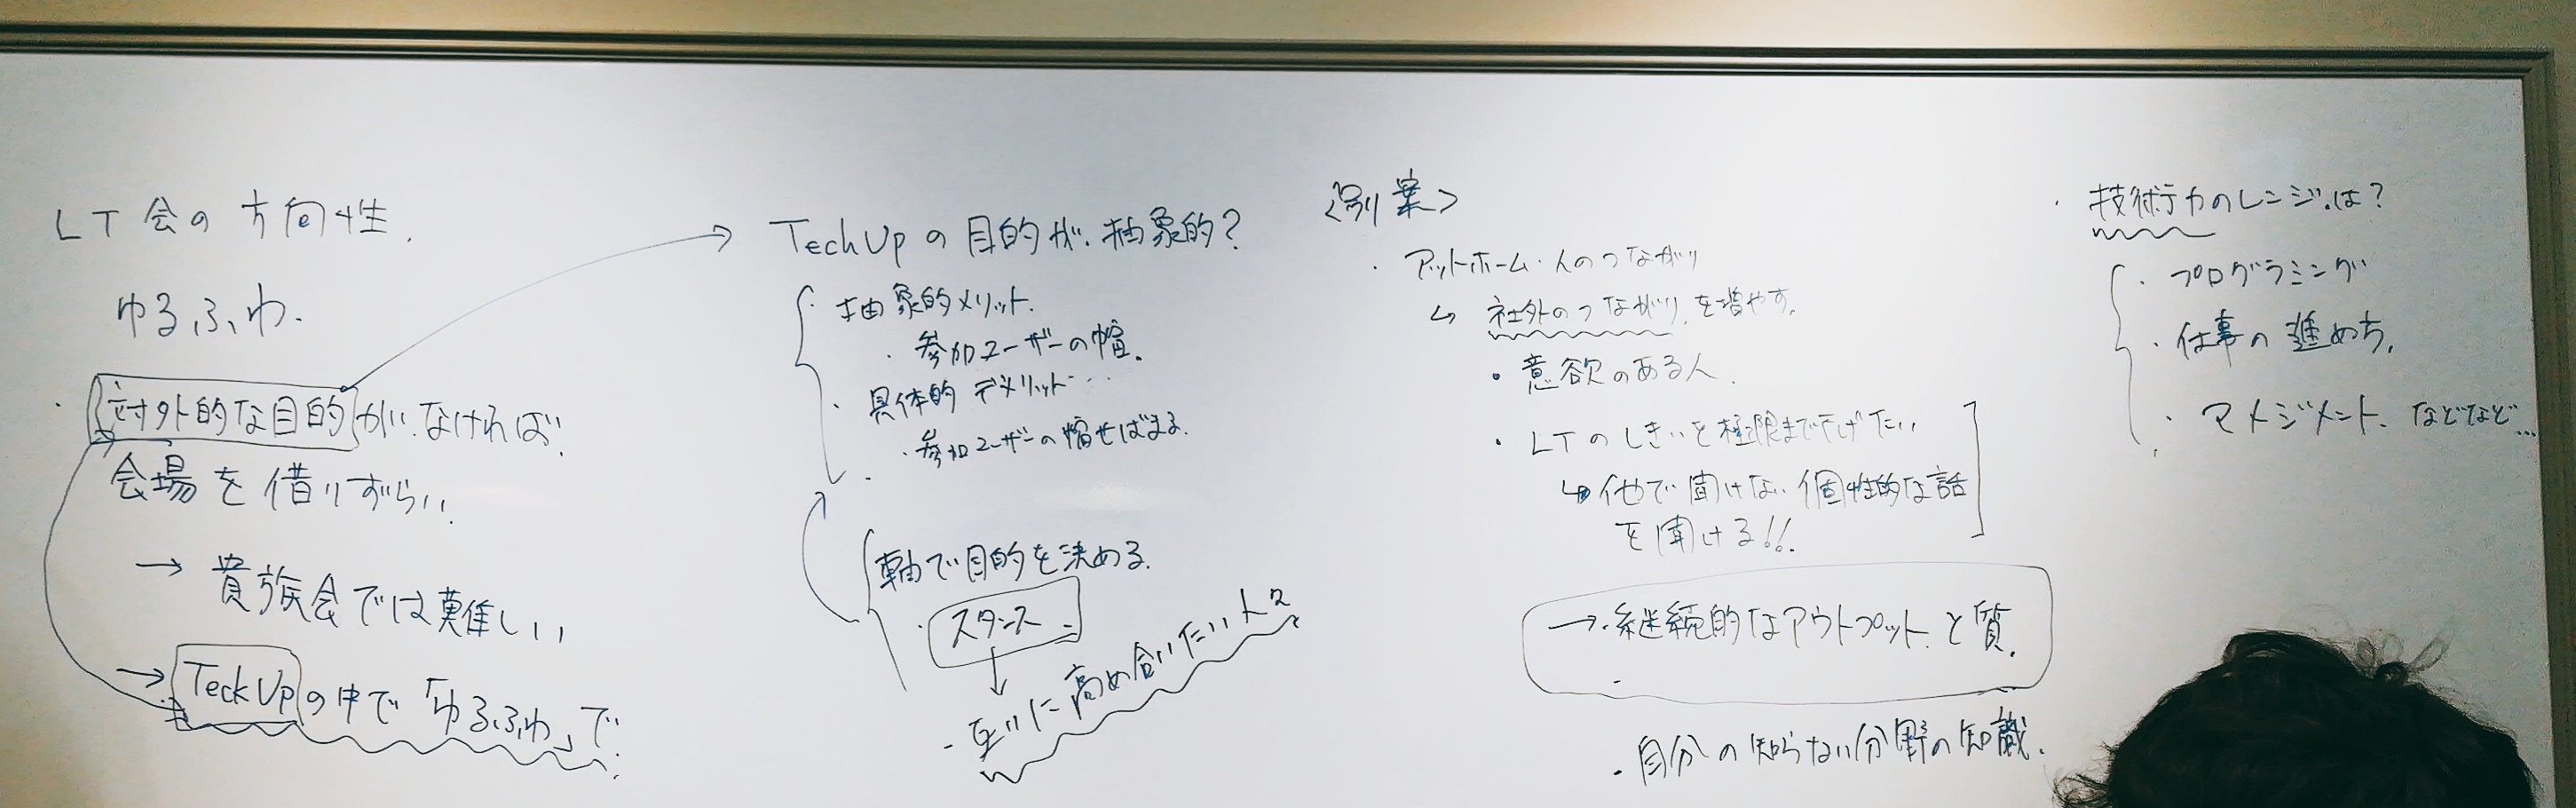 LT会の方向性.
ゆるふわ.
・対外的な目的がなければ
会場を借りずらい.
→ 貴族会では難しい
→ TeckUpの中で「ゆるふわ」で
TechUpの目的が抽象的?
・抽象的メリット.
・参加ユーザーの幅.
・具体的デメリット…
・参加ユーザーの幅せばまる.
軸で目的を決める.
・スタンス
↓
・互いに高め合いたい人々
<別案>
・アットホーム・人のつながり
↳ 社外のつながりを増やす.
・意欲のある人.
・LTのしきいを極限まで下げたい
↳ 他で聞けない個性的な話
を聞ける!!.
→・継続的なアウトプットと質.
・自分の知らない分野の知識.
・技術力のレンジは?
・プログラミング
・仕事の進め方.
・マメジメント. などなど…